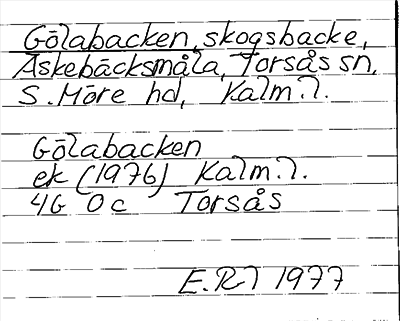 Gölabacken, skogsbacke,
Askebäcksmåla, Torsås sn,
S. Möre hd, Kalm. l.
Gölabacken
ek (1976) Kalm. l.
4G 0c Torsås
E.R) 1977